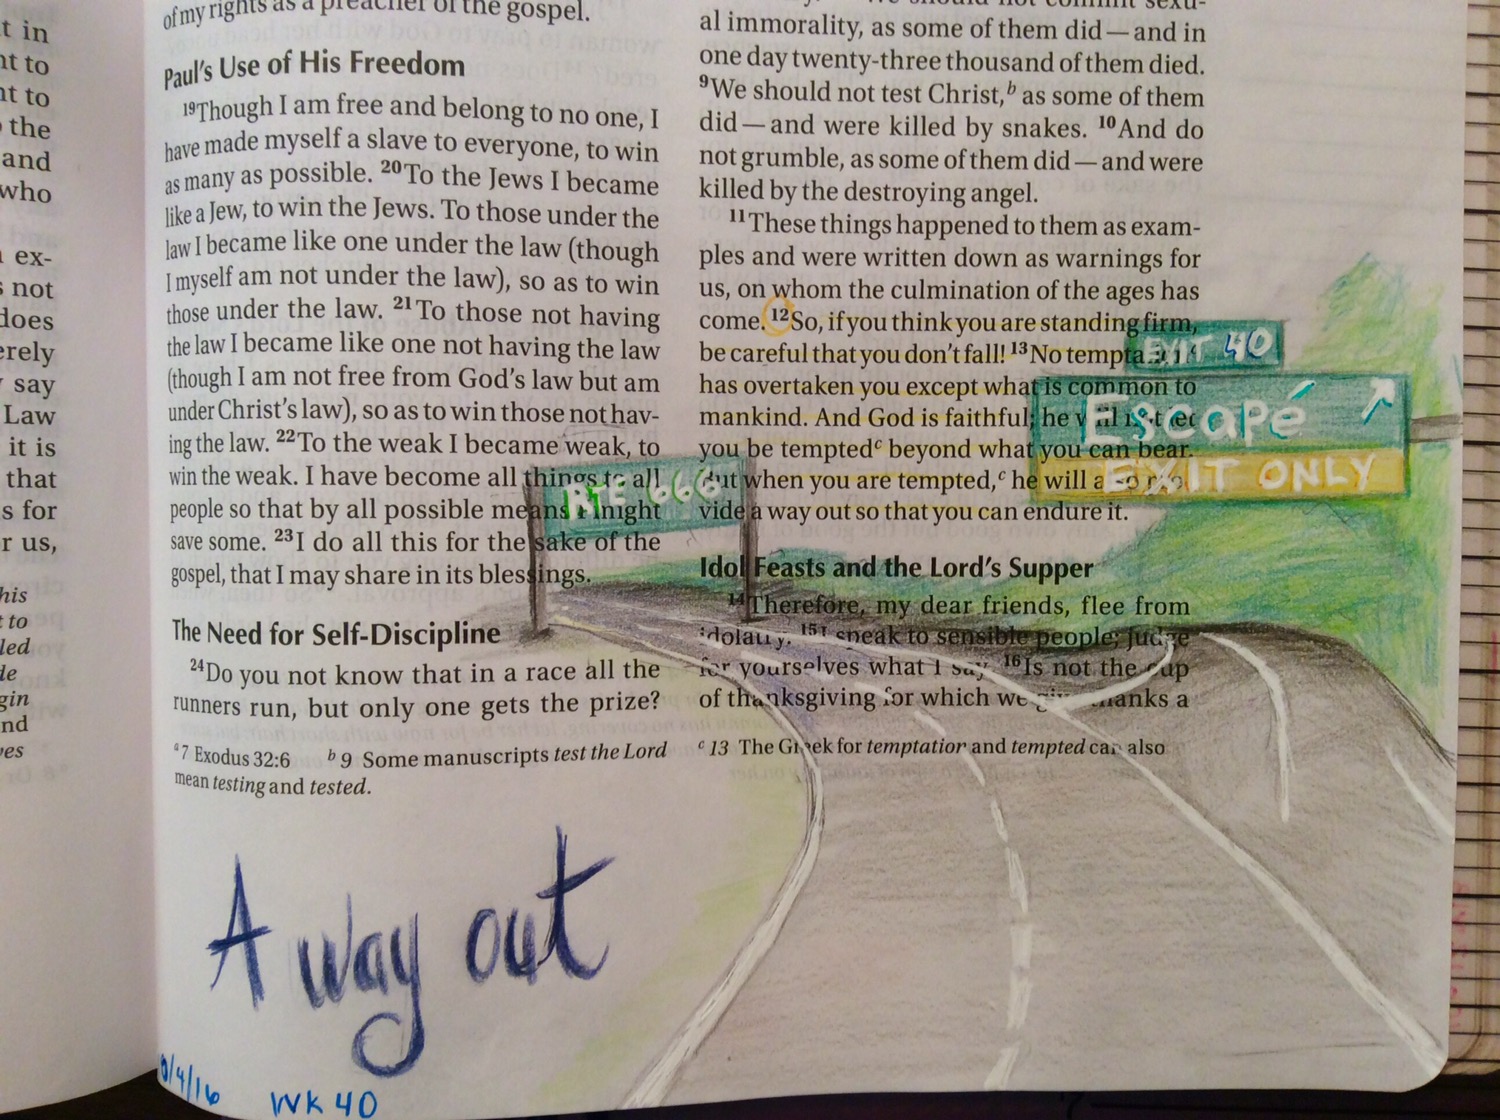 t in
nt to
nt to
the
and
who
ex-
not
does
erely
say
Law
it is
that
s for
r us,
his
to
led
de
gin
nd
ves
of my rights as a preacher of the gospel.
Paul's Use of His Freedom
19Though I am free and belong to no one, I
have made myself a slave to everyone, to win
as many as possible. 20To the Jews I became
like a Jew, to win the Jews. To those under the
law I became like one under the law (though
I myself am not under the law), so as to win
those under the law. 21To those not having
the law I became like one not having the law
(though I am not free from God's law but am
under Christ's law), so as to win those not hav-
ing the law. 22To the weak I became weak, to
win the weak. I have become all things to all
people so that by all possible means I might
save some. 23I do all this for the sake of the
gospel, that I may share in its blessings.
The Need for Self-Discipline
24Do you not know that in a race all the
runners run, but only one gets the prize?
al immorality, as some of them did — and in
one day twenty-three thousand of them died.
9We should not test Christ,b as some of them
did — and were killed by snakes. 10And do
not grumble, as some of them did — and were
killed by the destroying angel.
11These things happened to them as exam-
ples and were written down as warnings for
us, on whom the culmination of the ages has
come. 12So, if you think you are standing firm,
be careful that you don't fall! 13No temptation
has overtaken you except what is common to
mankind. And God is faithful; he will not let
you be temptedc beyond what you can bear.
But when you are tempted,c he will also pro-
vide a way out so that you can endure it.
Idol Feasts and the Lord's Supper
14Therefore, my dear friends, flee from
idolatry. 15I speak to sensible people; judge
for yourselves what I say. 16Is not the cup
of thanksgiving for which we give thanks a
a7 Exodus 32:6 b9 Some manuscripts test the Lord
c13 The Greek for temptation and tempted can also
mean testing and tested.
RTE 666
EXIT 40
Escapé
EXIT ONLY
A way out
/4/16 WK 40